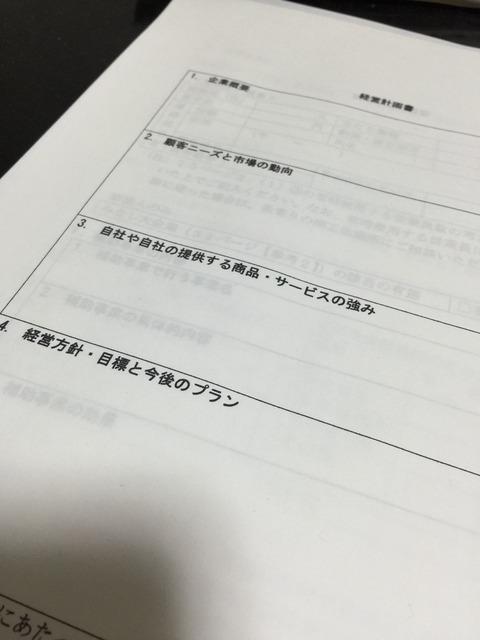 経営計画書
1. 企業概要
2. 顧客ニーズと市場の動向
3. 自社や自社の提供する商品・サービスの強み
4. 経営方針・目標と今後のプラン
にあた